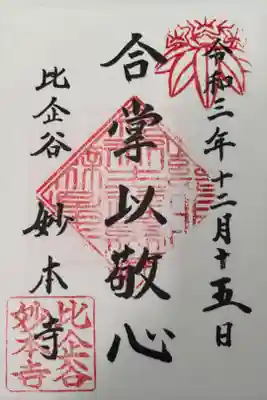 令和三年十二月十五日
合掌以敬心
比企谷
妙本寺
比企谷
妙本寺